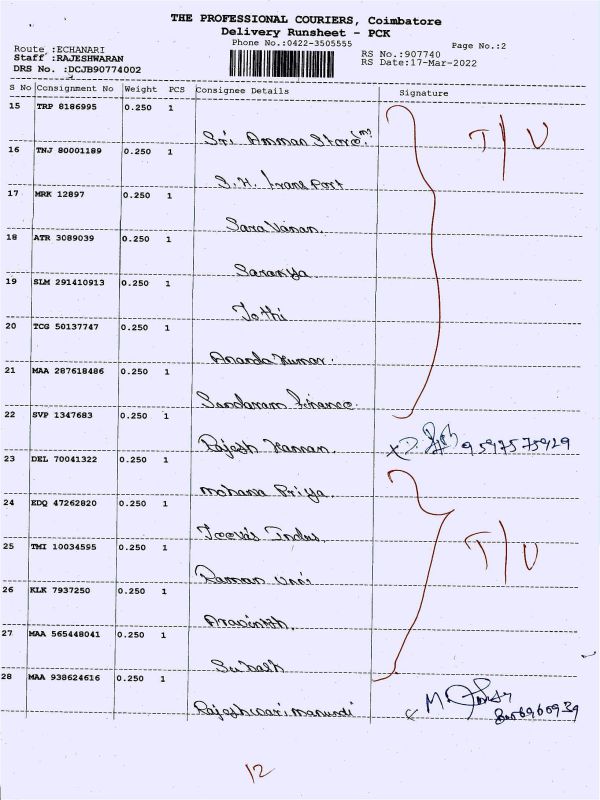 THE PROFESSIONAL COURIERS, Coimbatore
Delivery Runsheet - PCK
Phone No.:0422-3505555
Page No.:2
Route :ECHANARI
Staff :RAJESHWARAN
DRS No. :DCJB90774002
RS No.:907740
RS Date:17-Mar-2022
S No Consignment No Weight PCS Consignee Details Signature
15 TRP 8186995 0.250 1
Sri Amman Store (m)
T/U
16 TNJ 80001189 0.250 1
S.H. Trans Port
17 MRK 12897 0.250 1
Saravanan.
18 ATR 3089039 0.250 1
Saranya
19 SLM 291410913 0.250 1
Jothi
20 TCG 50137747 0.250 1
Ananda Kumar.
21 MAA 287618486 0.250 1
Sundaram Finance.
22 SVP 1347683 0.250 1
Rajesh Kannan. 9597575929
23 DEL 70041322 0.250 1
Mohana Priya
24 KDQ 47262820 0.250 1
Jeeva's Indus,
T/U
25 TMI 10034595 0.250 1
Raman Unni
26 KLK 7937250 0.250 1
Aravinth.
27 MAA 565448041 0.250 1
Subash
28 MAA 938624616 0.250 1
Rajeshwari
12